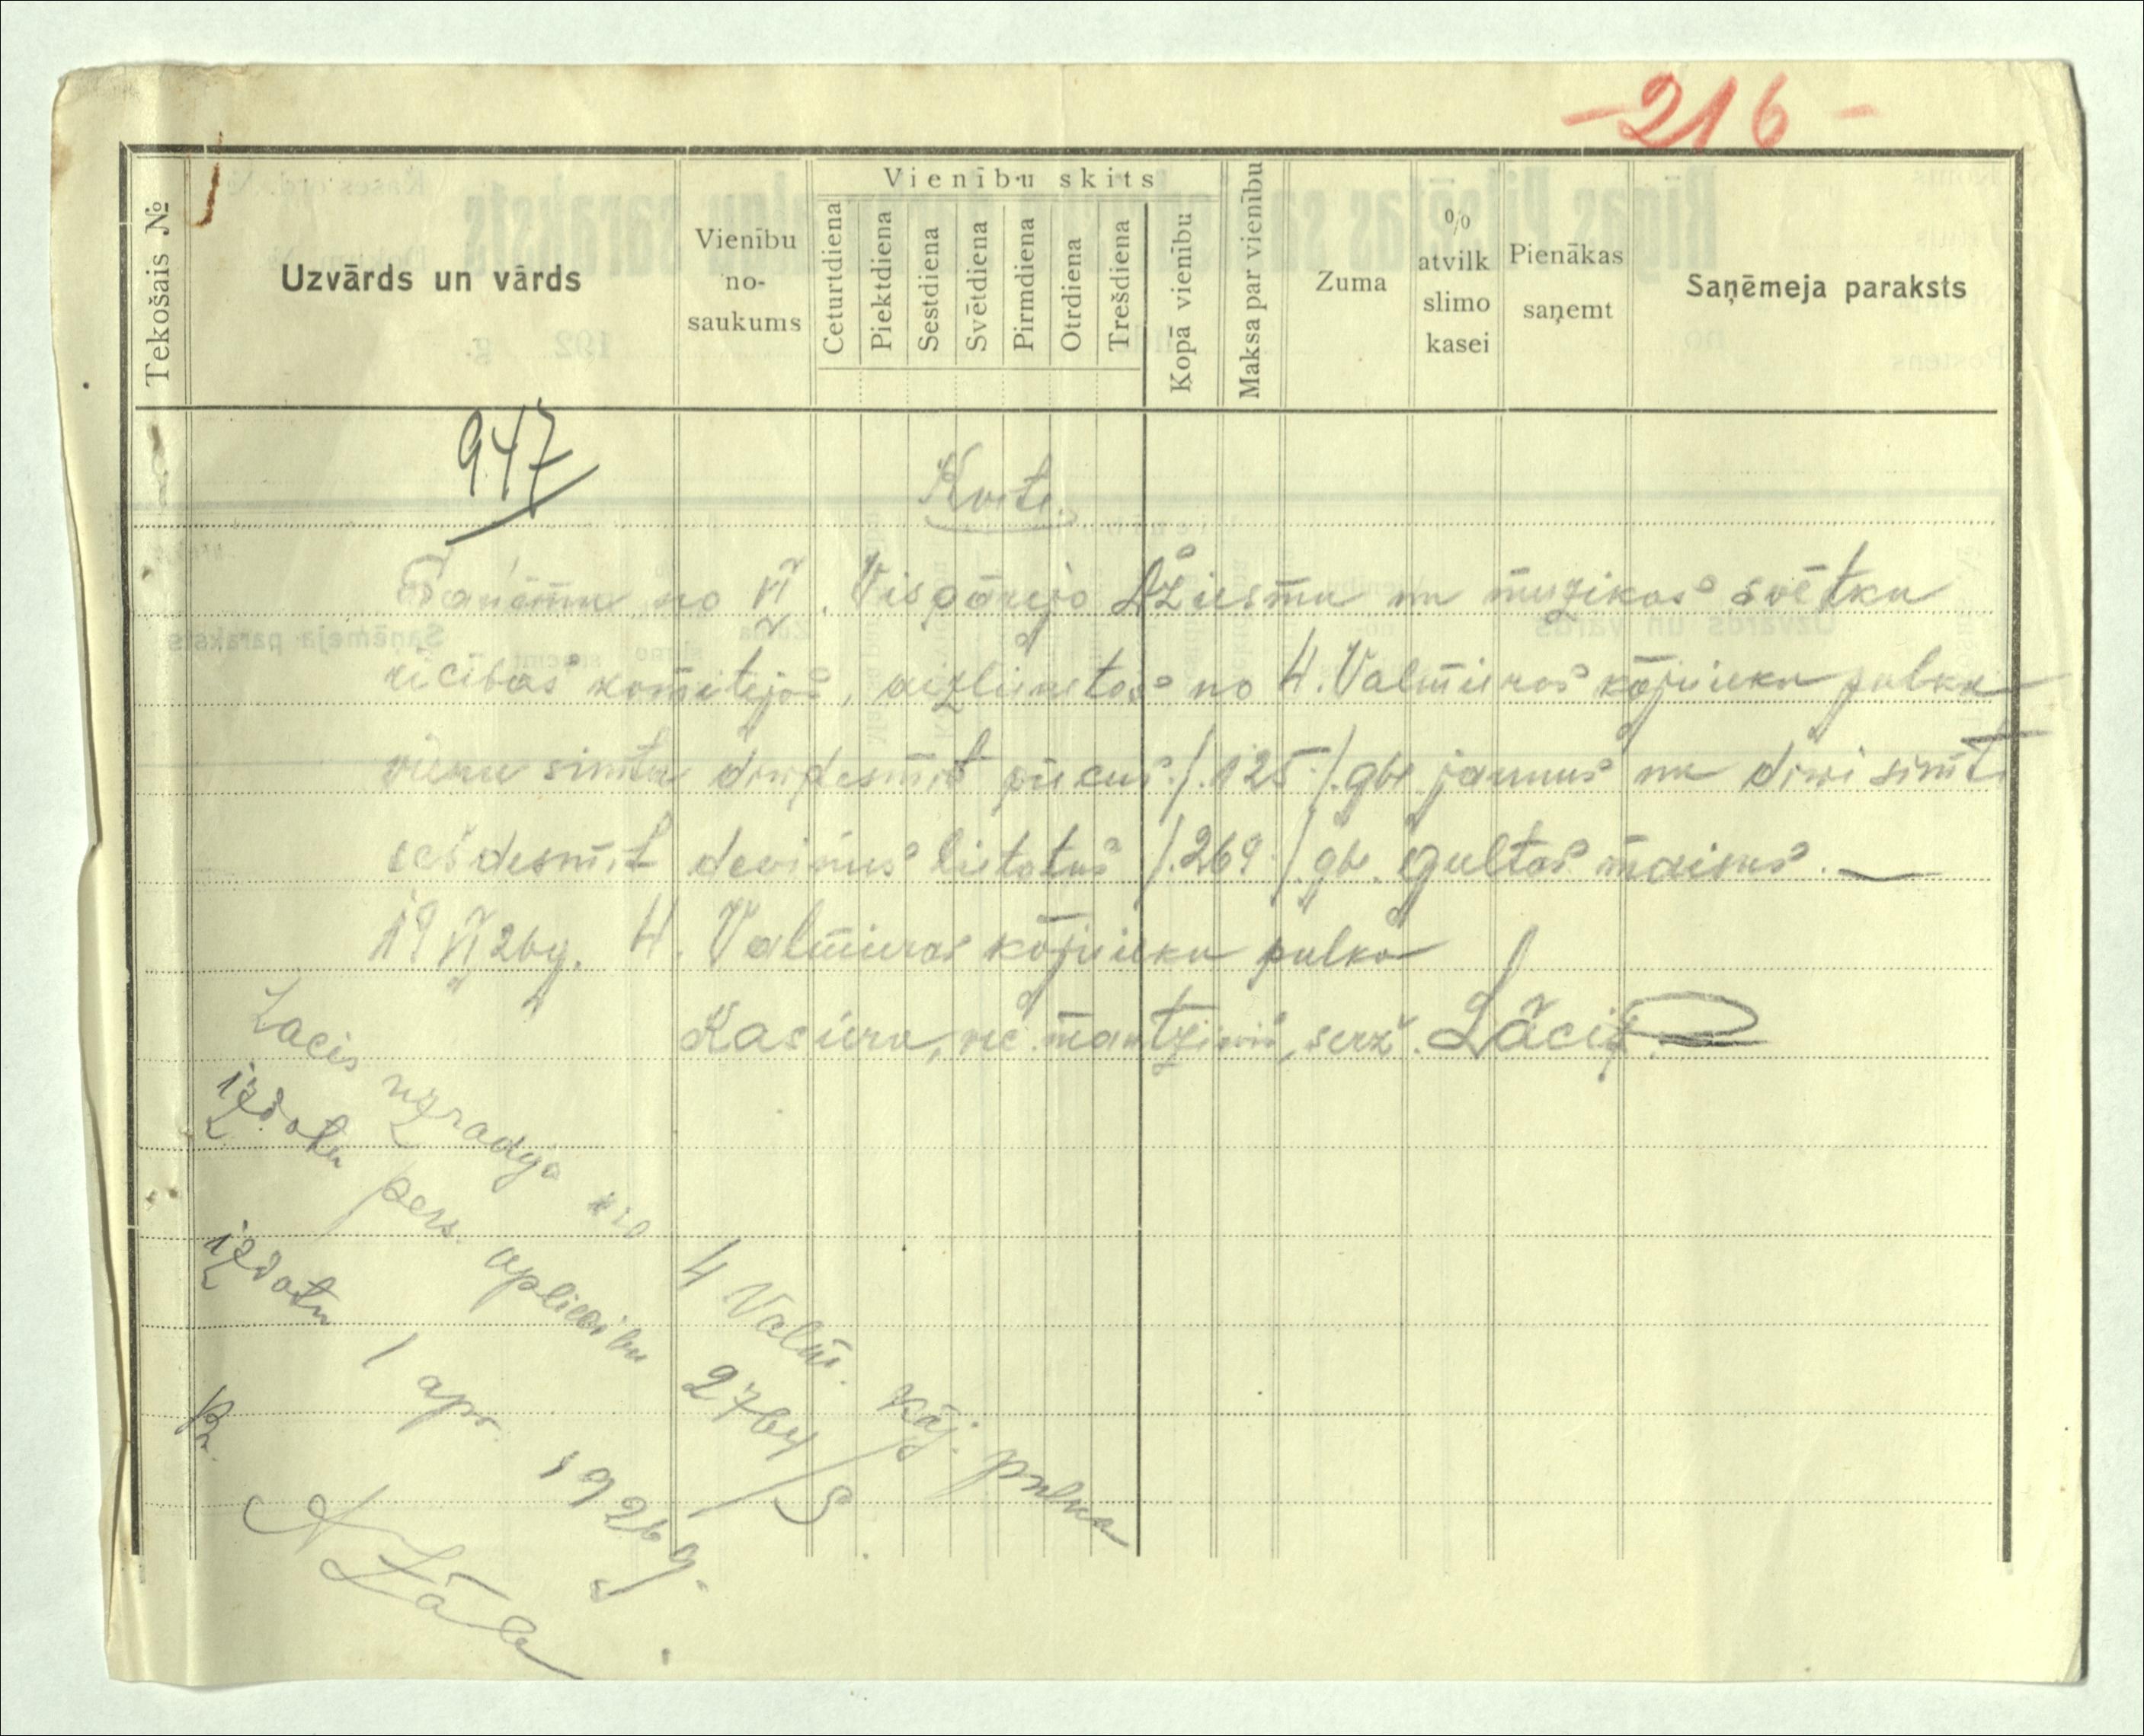 -216-
Tekošais №
Uzvārds un vārds
Vienību no-saukums
Vienību skits
Ceturtdiena
Piektdiena
Sestdiena
Svētdiena
Pirmdiena
Otrdiena
Trešdiena
Kopā vienību
Maksa par vienību
Zuma
% atvilk slimo kasei
Pienākas saņemt
Saņēmeja paraksts
947
Kvite.
Saņēmu no VI. Vispārejo Dziesmu un muzikas svētku
rīcibas komitejas, aizlienetos no 4. Valmieras kājnieku pulka
vienu simtu divdesmit piecus /.125./ gb. jaunus un divi simti
sešdesmit deviņus lietotus /.269./ gb. gultas maisus.
19 VI 26 g. 4. Valmieras kājnieku pulka
Kaseiru, vec. mantzinis, serž. Lācis
Lacis uzradija no 4 Valm. Kāj. pulka
izdotu pers. apliecibu 2764/S
izdotu 1 apr. 1926 g.